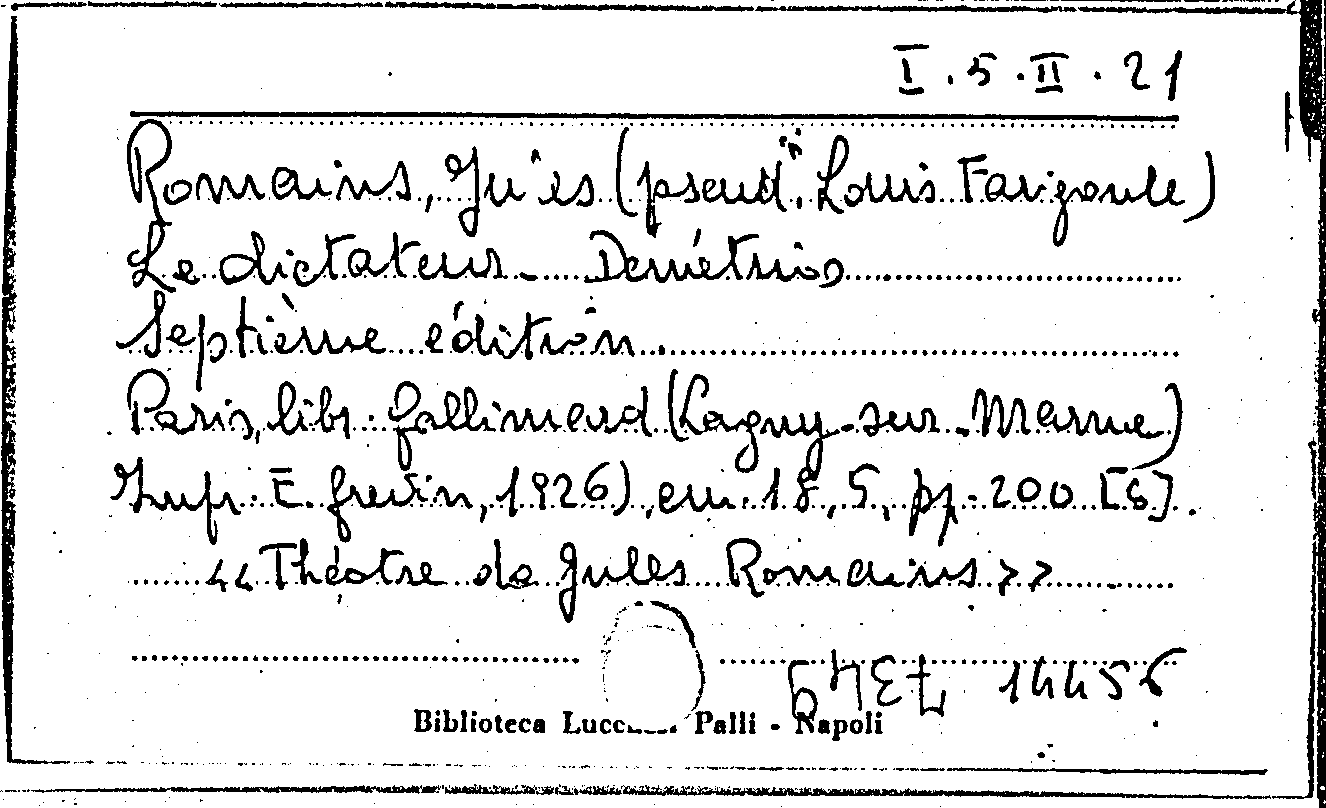 I.5.II.21
Romains, Ju'es (pseud. Louis Farigoule)
Le dictateur - Démétrios
Septième édition.
Paris, libr. Gallimard (Lagny-sur-Marne)
Impr. E. Grevin, 1926), cm. 18,5, pp. 200 [6].
<<Théâtre de Jules Romains>>
14456
Biblioteca Lucc Palli - Napoli